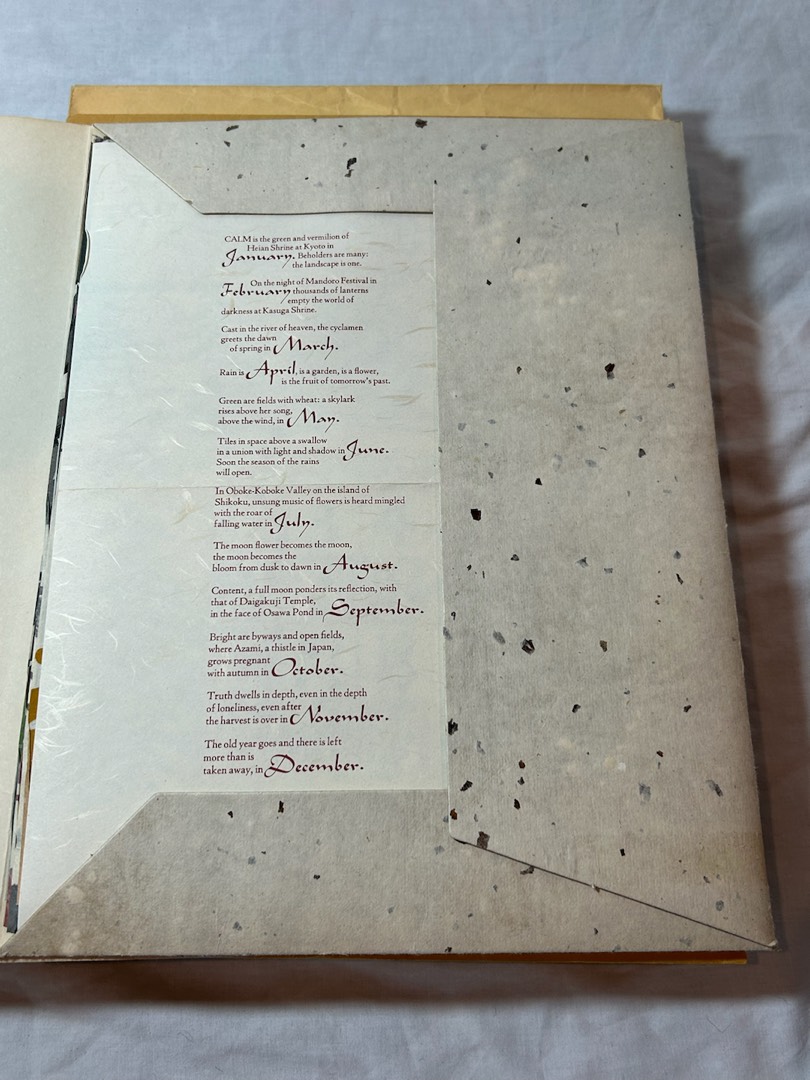 CALM is the green and vermilion of
Heian Shrine at Kyoto in
January. Beholders are many:
the landscape is one.
On the night of Mandoro Festival in
February thousands of lanterns
empty the world of
darkness at Kasuga Shrine.
Cast in the river of heaven, the cyclamen
greets the dawn
of spring in March.
Rain is April, is a garden, is a flower,
is the fruit of tomorrow's past.
Green are fields with wheat: a skylark
rises above her song,
above the wind, in May.
Tiles in space above a swallow
in a union with light and shadow in June.
Soon the season of the rains
will open.
In Oboke-Koboke Valley on the island of
Shikoku, unsung music of flowers is heard mingled
with the roar of
falling water in July.
The moon flower becomes the moon,
the moon becomes the
bloom from dusk to dawn in August.
Content, a full moon ponders its reflection, with
that of Daigakuji Temple,
in the face of Osawa Pond in September.
Bright are byways and open fields,
where Azami, a thistle in Japan,
grows pregnant
with autumn in October.
Truth dwells in depth, even in the depth
of loneliness, even after
the harvest is over in November.
The old year goes and there is left
more than is
taken away, in December.